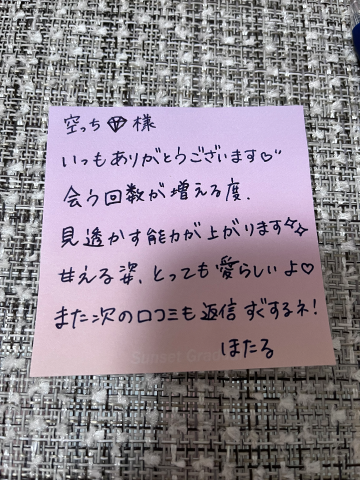 空っち💎様
いつもありがとうございます♡"
会う回数が増える度、
見透かす能力が上がります✧✧
甘える姿、とっても愛らしいよ♡
また次の口コミも返信すぐするネ!
ほたる